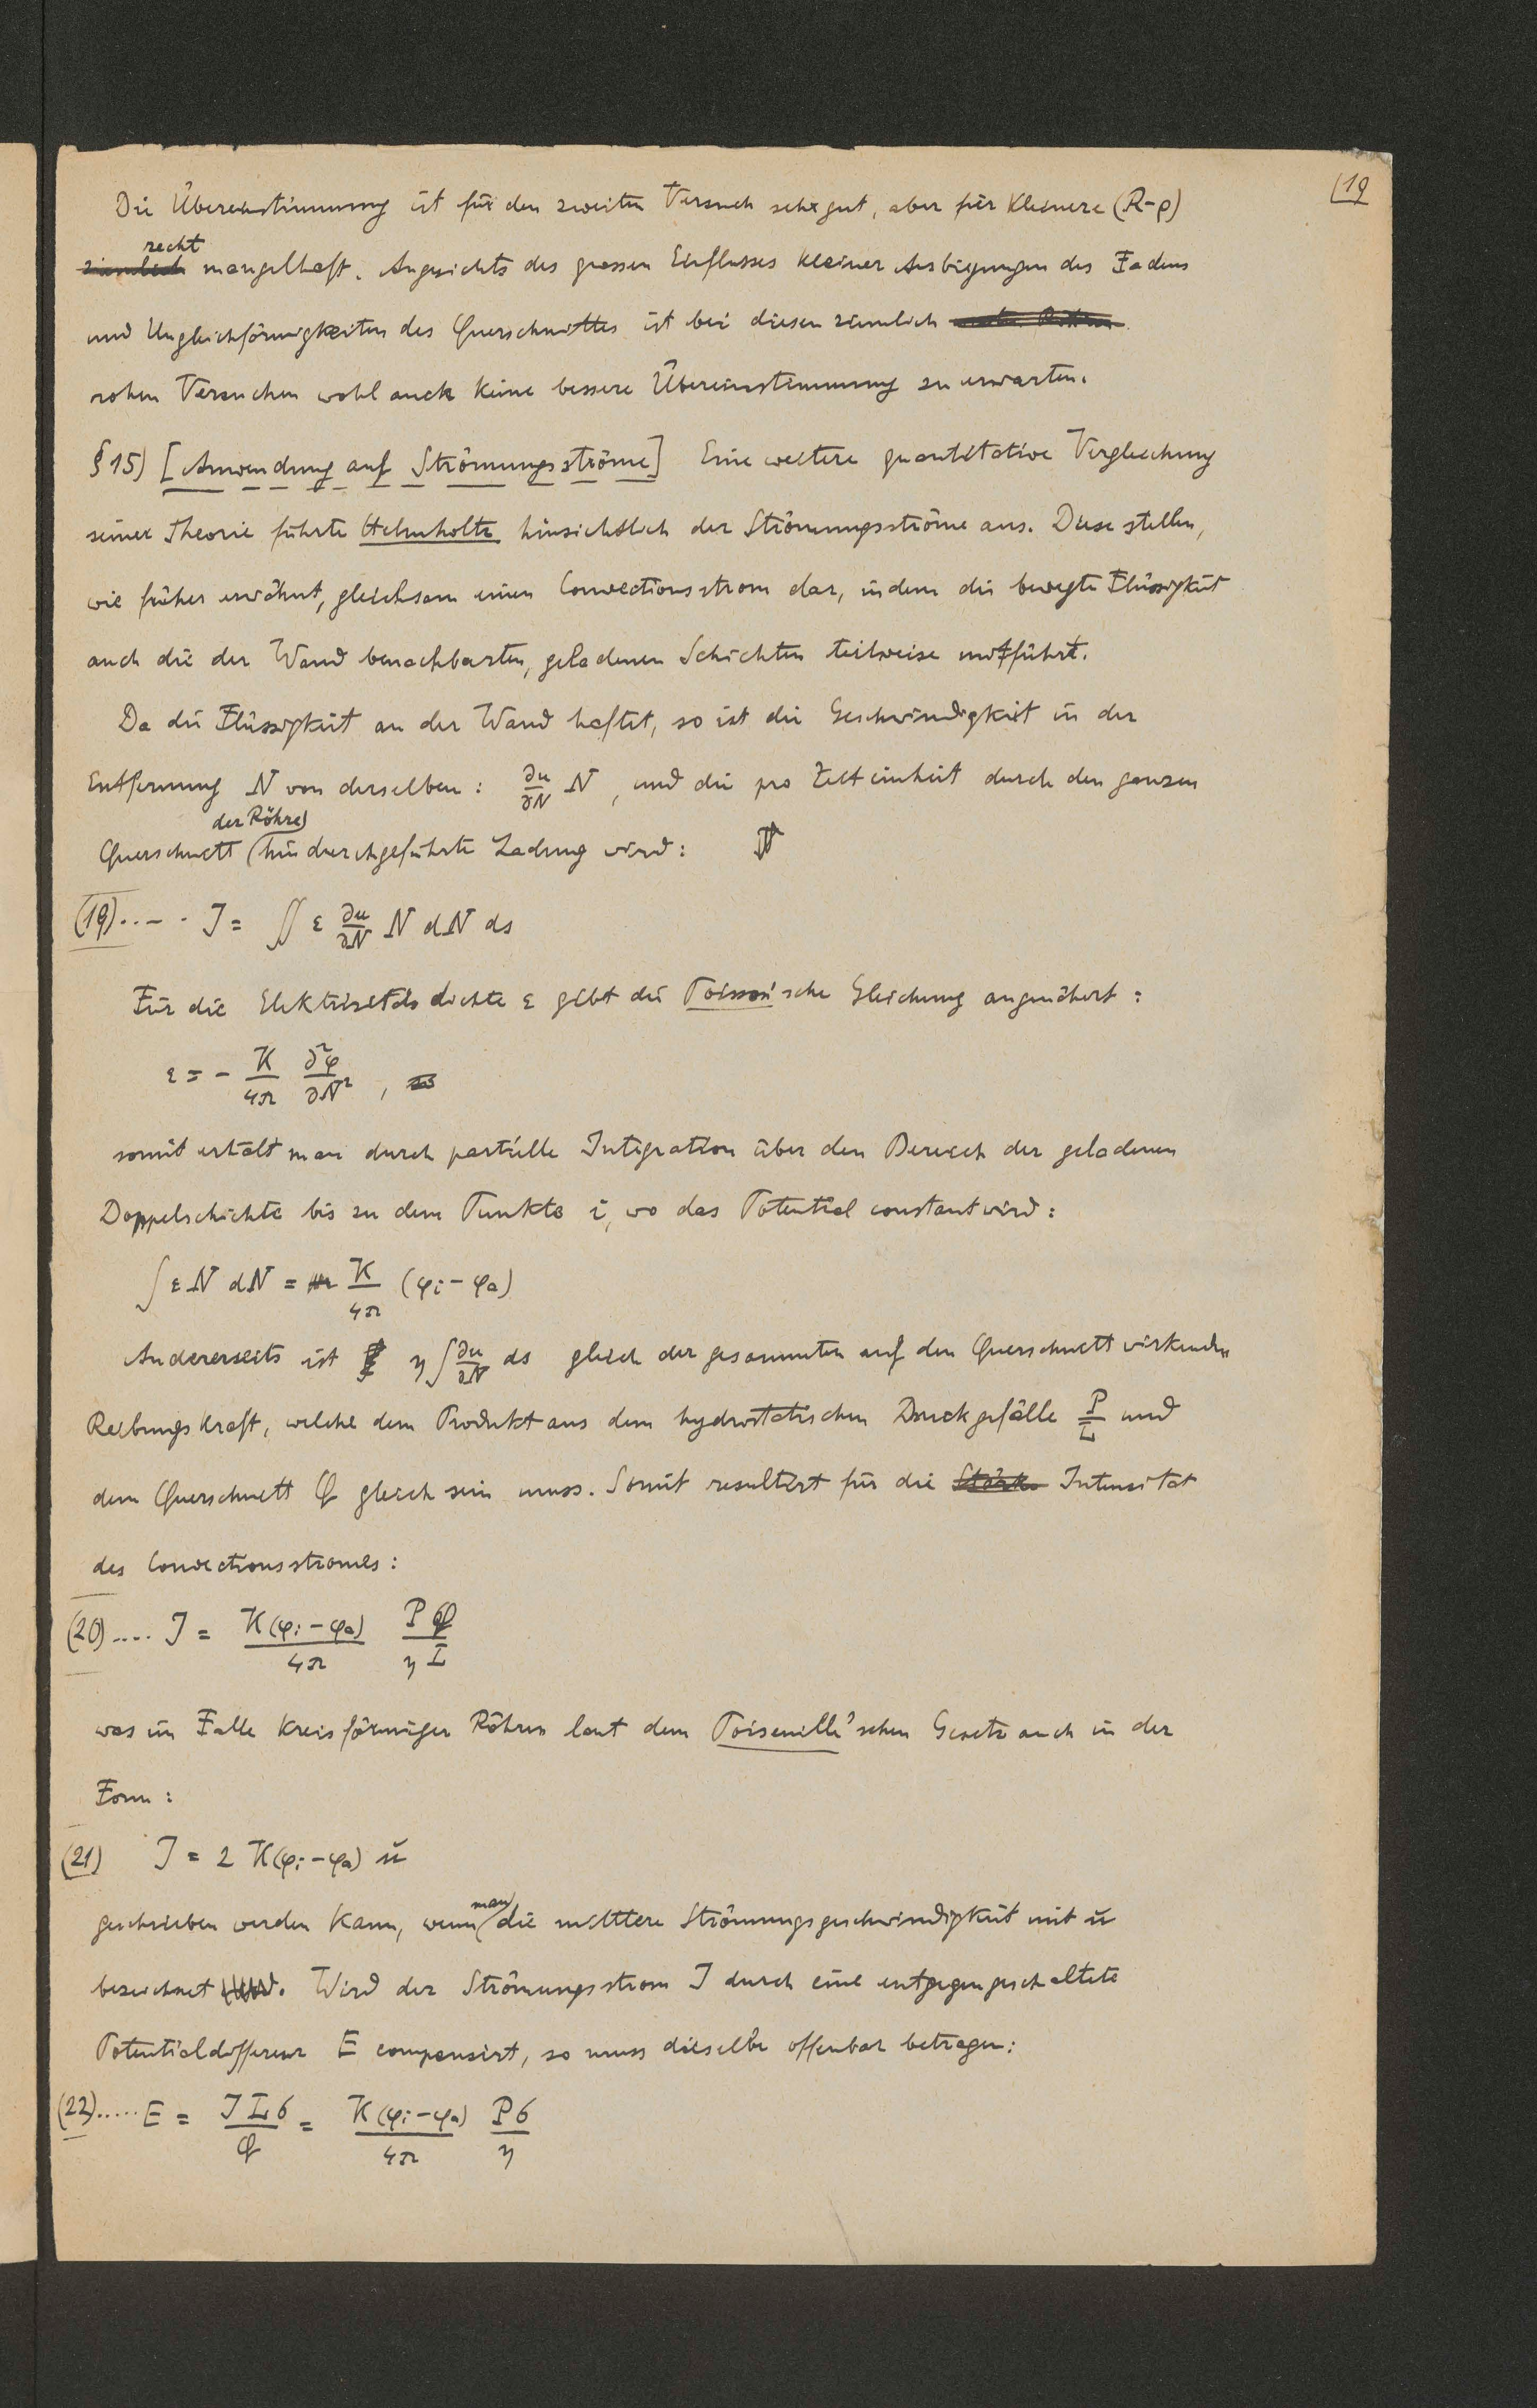 (19
Die Übereinstimmung ist für den zweiten Versuch sehr gut, aber für kleinere (R-ρ)
recht
ziemlich mangelhaft. Angesichts des grossen Einflusses kleiner Ausbiegungen des Fadens
und Ungleichförmigkeiten des Querschnittes ist bei diesen ziemlich
rohen Versuchen wohl auch keine bessere Übereinstimmung zu erwarten.
§ 15) [Anwendung auf Strömungsströme] Eine weitere quantitative Vergleichung
seiner Theorie führte Helmholtz hinsichtlich der Strömungsströme aus. Diese stellen,
wie früher erwähnt, gleichsam einen Convectionsstrom dar, indem die bewegte Flüssigkeit
auch die der Wand benachbarten, geladenen Schichten teilweise mitführt.
Da die Flüssigkeit an der Wand haftet, so ist die Geschwindigkeit in der
Entfernung N von derselben: ∂u/∂N N, und die pro Zeiteinheit durch den ganzen
der Röhre
Querschnitt hindurchgeführte Ladung wird:
(19)..... J = ∬ ε ∂u/∂N N dN ds
Für die Elektrizitätsdichte ε gibt die Poisson'sche Gleichung angenähert:
ε = - K/4π ∂²φ/∂N² ,
somit erhält man durch partielle Integration über den Bereich der geladenen
Doppelschichte bis zu dem Punkte i, wo das Potential constant wird:
∫ ε N dN = K/4π (φi - φa)
Andererseits ist η ∫ ∂u/∂N ds gleich der gesammten auf den Querschnitt wirkenden
Reibungskraft, welche dem Produkt aus dem hydrostatischen Druckgefälle P/L und
dem Querschnitt Q gleich sein muss. Somit resultirt für die Stärke Intensität
des Convectionsstromes:
(20).... J = K(φi - φa)/4π PQ/ηL
was im Falle kreisförmiger Röhren laut dem Poiseuille'schen Gesetz auch in der
Form:
(21) J = 2 K(φi - φa) ū
man
geschrieben werden kann, wenn die mittlere Strömungsgeschwindigkeit mit ū
bezeichnet wird. Wird der Strömungsstrom J durch eine entgegengeschaltete
Potentialdifferenz E compensirt, so muss dieselbe offenbar betragen:
(22)..... E = JLσ/Q = K(φi - φa)/4π Pσ/η